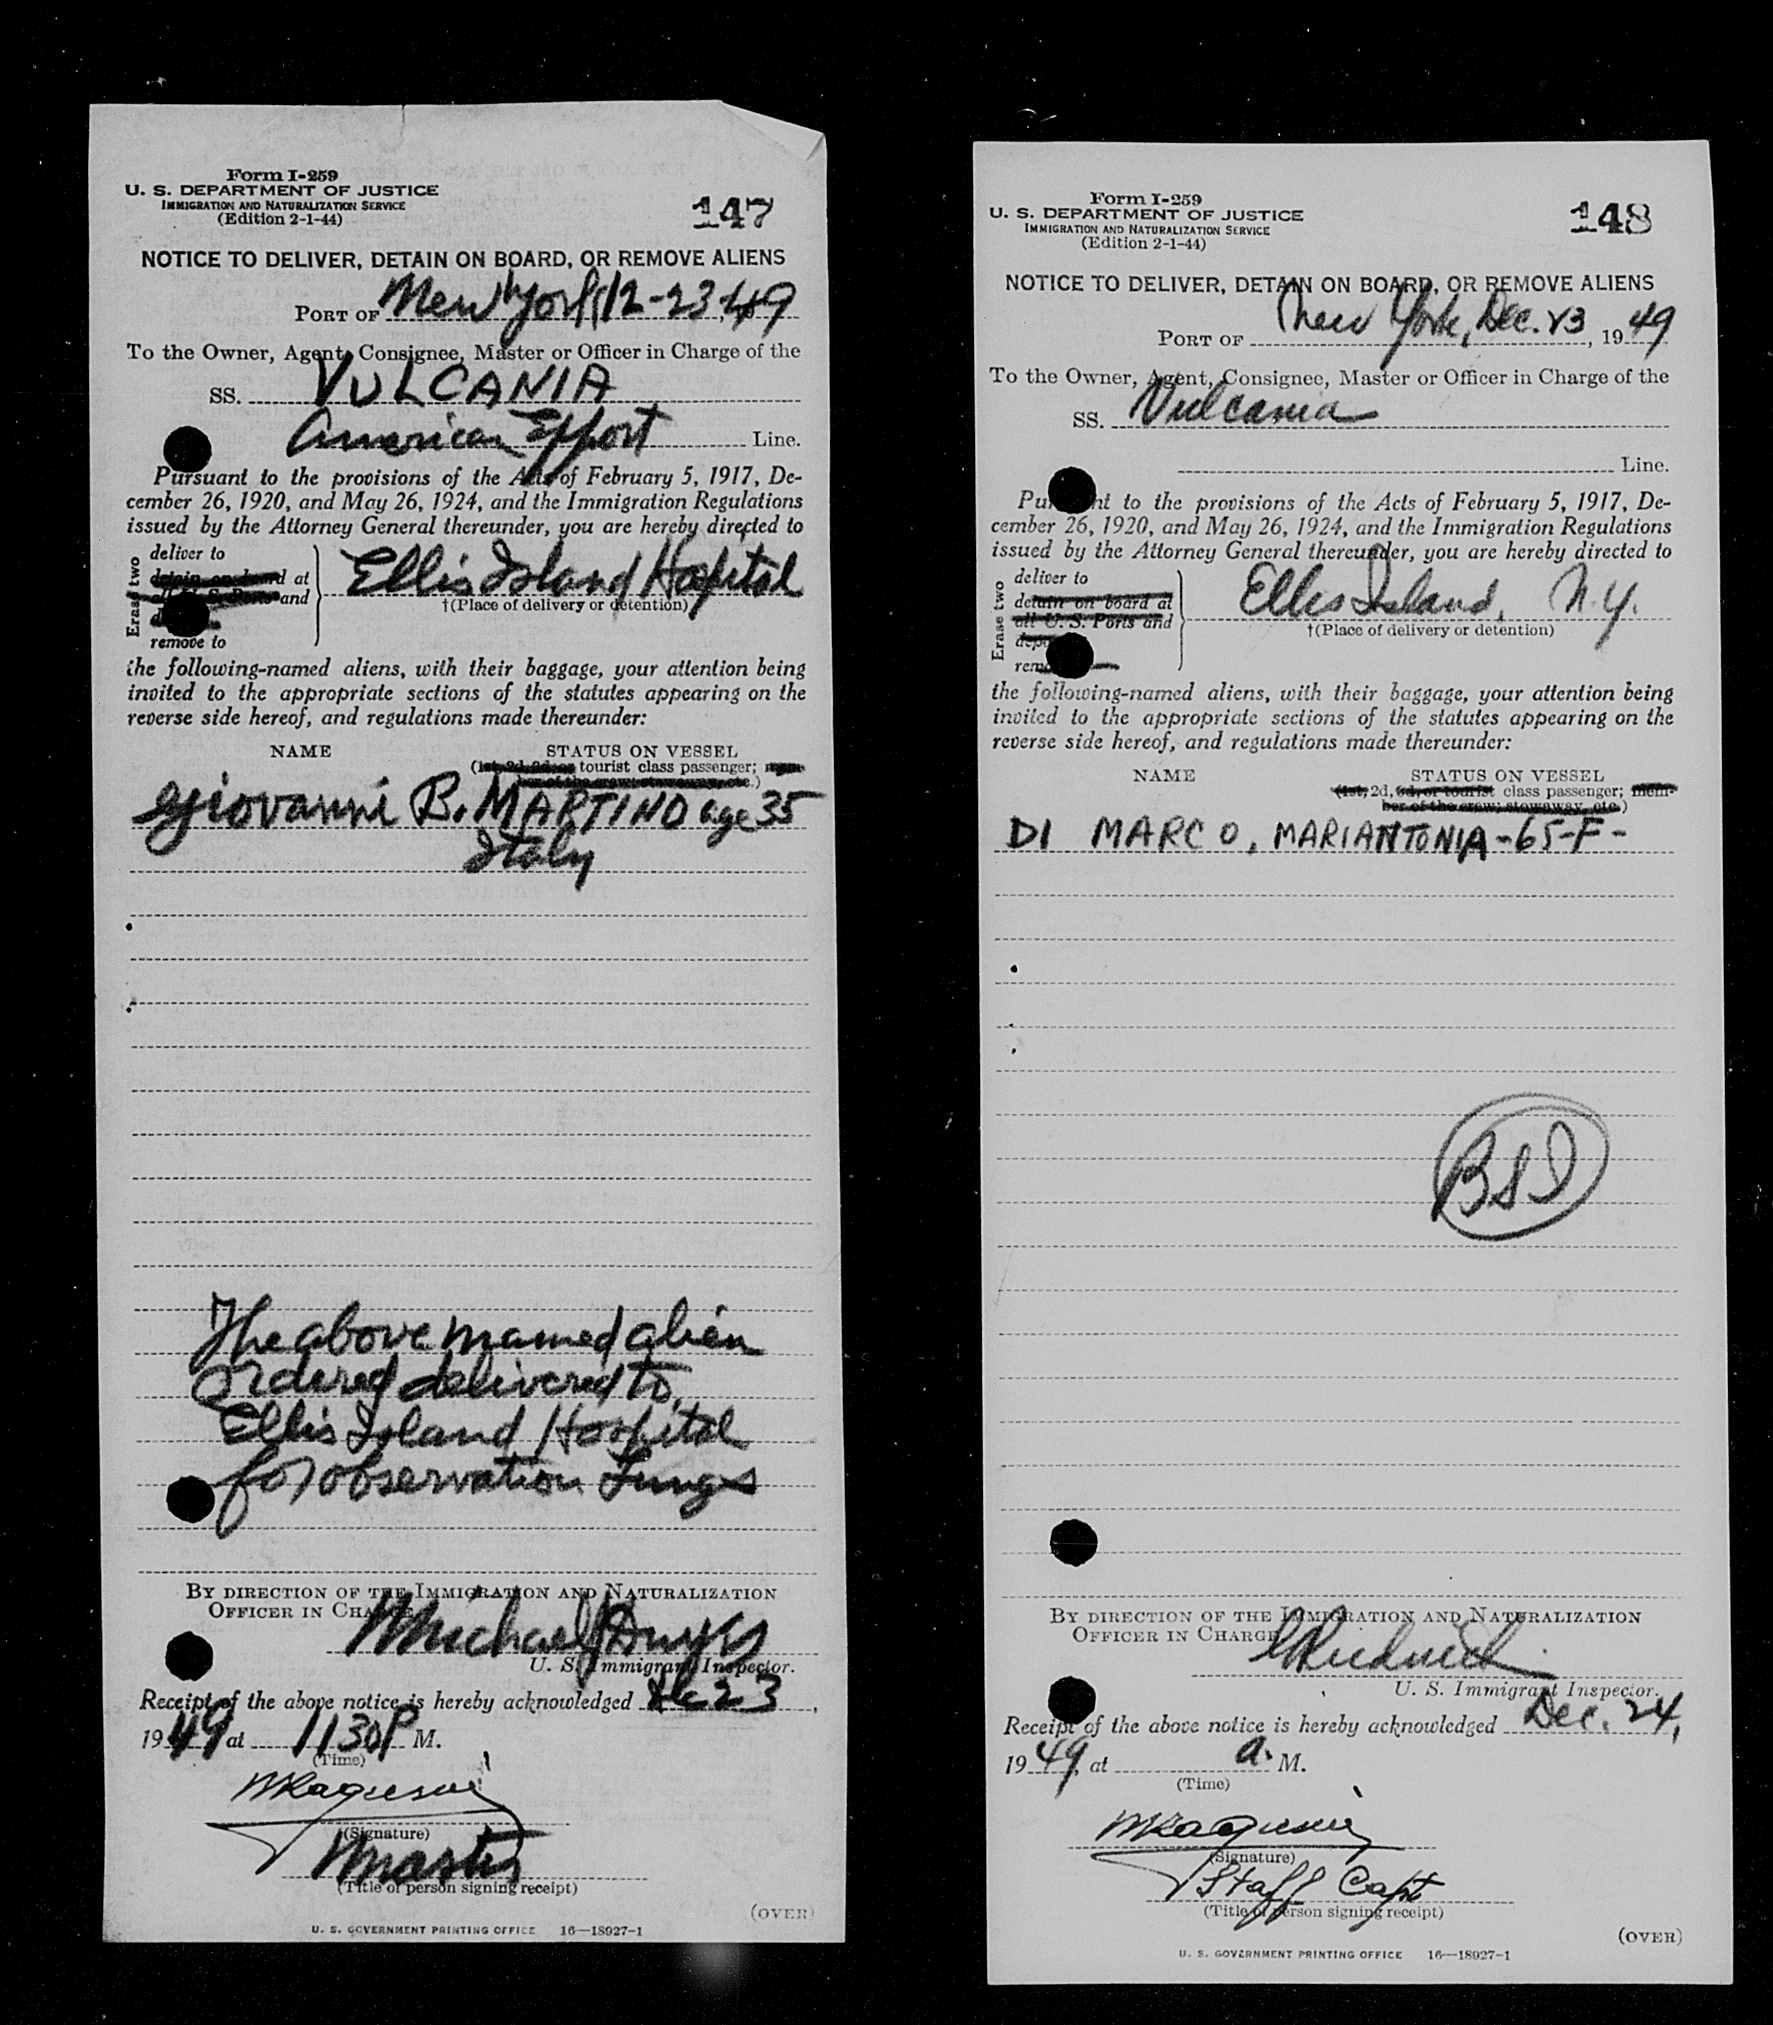 Form I-259
U. S. DEPARTMENT OF JUSTICE
IMMIGRATION AND NATURALIZATION SERVICE
(Edition 2-1-44)
147
NOTICE TO DELIVER, DETAIN ON BOARD, OR REMOVE ALIENS
PORT OF New York 12-23-49
To the Owner, Agent, Consignee, Master or Officer in Charge of the
SS. VULCANIA
American Export Line.
Pursuant to the provisions of the Acts of February 5, 1917, De-
cember 26, 1920, and May 26, 1924, and the Immigration Regulations
issued by the Attorney General thereunder, you are hereby directed to
Erase two
deliver to
detain on board at
all U. S. Ports and
remove to
Ellis Island Hospital
†(Place of delivery or detention)
the following-named aliens, with their baggage, your attention being
invited to the appropriate sections of the statutes appearing on the
reverse side hereof, and regulations made thereunder:
NAME STATUS ON VESSEL
(1st, 2d, 3d, or tourist class passenger; mem-
ber of the crew; stowaway, etc.)
Giovanni B. MARTINO age 35
Italy
The above named alien
ordered delivered to
Ellis Island Hospital
for observation Lungs
BY DIRECTION OF THE IMMIGRATION AND NATURALIZATION
OFFICER IN CHARGE
Michael
U. S. Immigrant Inspector.
Receipt of the above notice is hereby acknowledged Dec 23,
1949 at 1130 P M.
(Time)
(Signature)
Master
(Title of person signing receipt)
(OVER)
U. S. GOVERNMENT PRINTING OFFICE 16—18927-1
Form I-259
U. S. DEPARTMENT OF JUSTICE
IMMIGRATION AND NATURALIZATION SERVICE
(Edition 2-1-44)
148
NOTICE TO DELIVER, DETAIN ON BOARD, OR REMOVE ALIENS
PORT OF New York, Dec. 23, 1949
To the Owner, Agent, Consignee, Master or Officer in Charge of the
SS. Vulcania
Line.
Pursuant to the provisions of the Acts of February 5, 1917, De-
cember 26, 1920, and May 26, 1924, and the Immigration Regulations
issued by the Attorney General thereunder, you are hereby directed to
Erase two
deliver to
detain on board at
all U. S. Ports and
Ellis Island, N.Y.
†(Place of delivery or detention)
the following-named aliens, with their baggage, your attention being
invited to the appropriate sections of the statutes appearing on the
reverse side hereof, and regulations made thereunder:
NAME STATUS ON VESSEL
(1st, 2d, 3d, or tourist class passenger; mem-
ber of the crew; stowaway, etc.)
DI MARCO, MARIANTONIA-65-F-
BSI
BY DIRECTION OF THE IMMIGRATION AND NATURALIZATION
OFFICER IN CHARGE
U. S. Immigrant Inspector.
Receipt of the above notice is hereby acknowledged Dec. 24,
1949, at a. M.
(Time)
(Signature)
Staff Capt
(Title of person signing receipt)
(OVER)
U. S. GOVERNMENT PRINTING OFFICE 16—18927-1